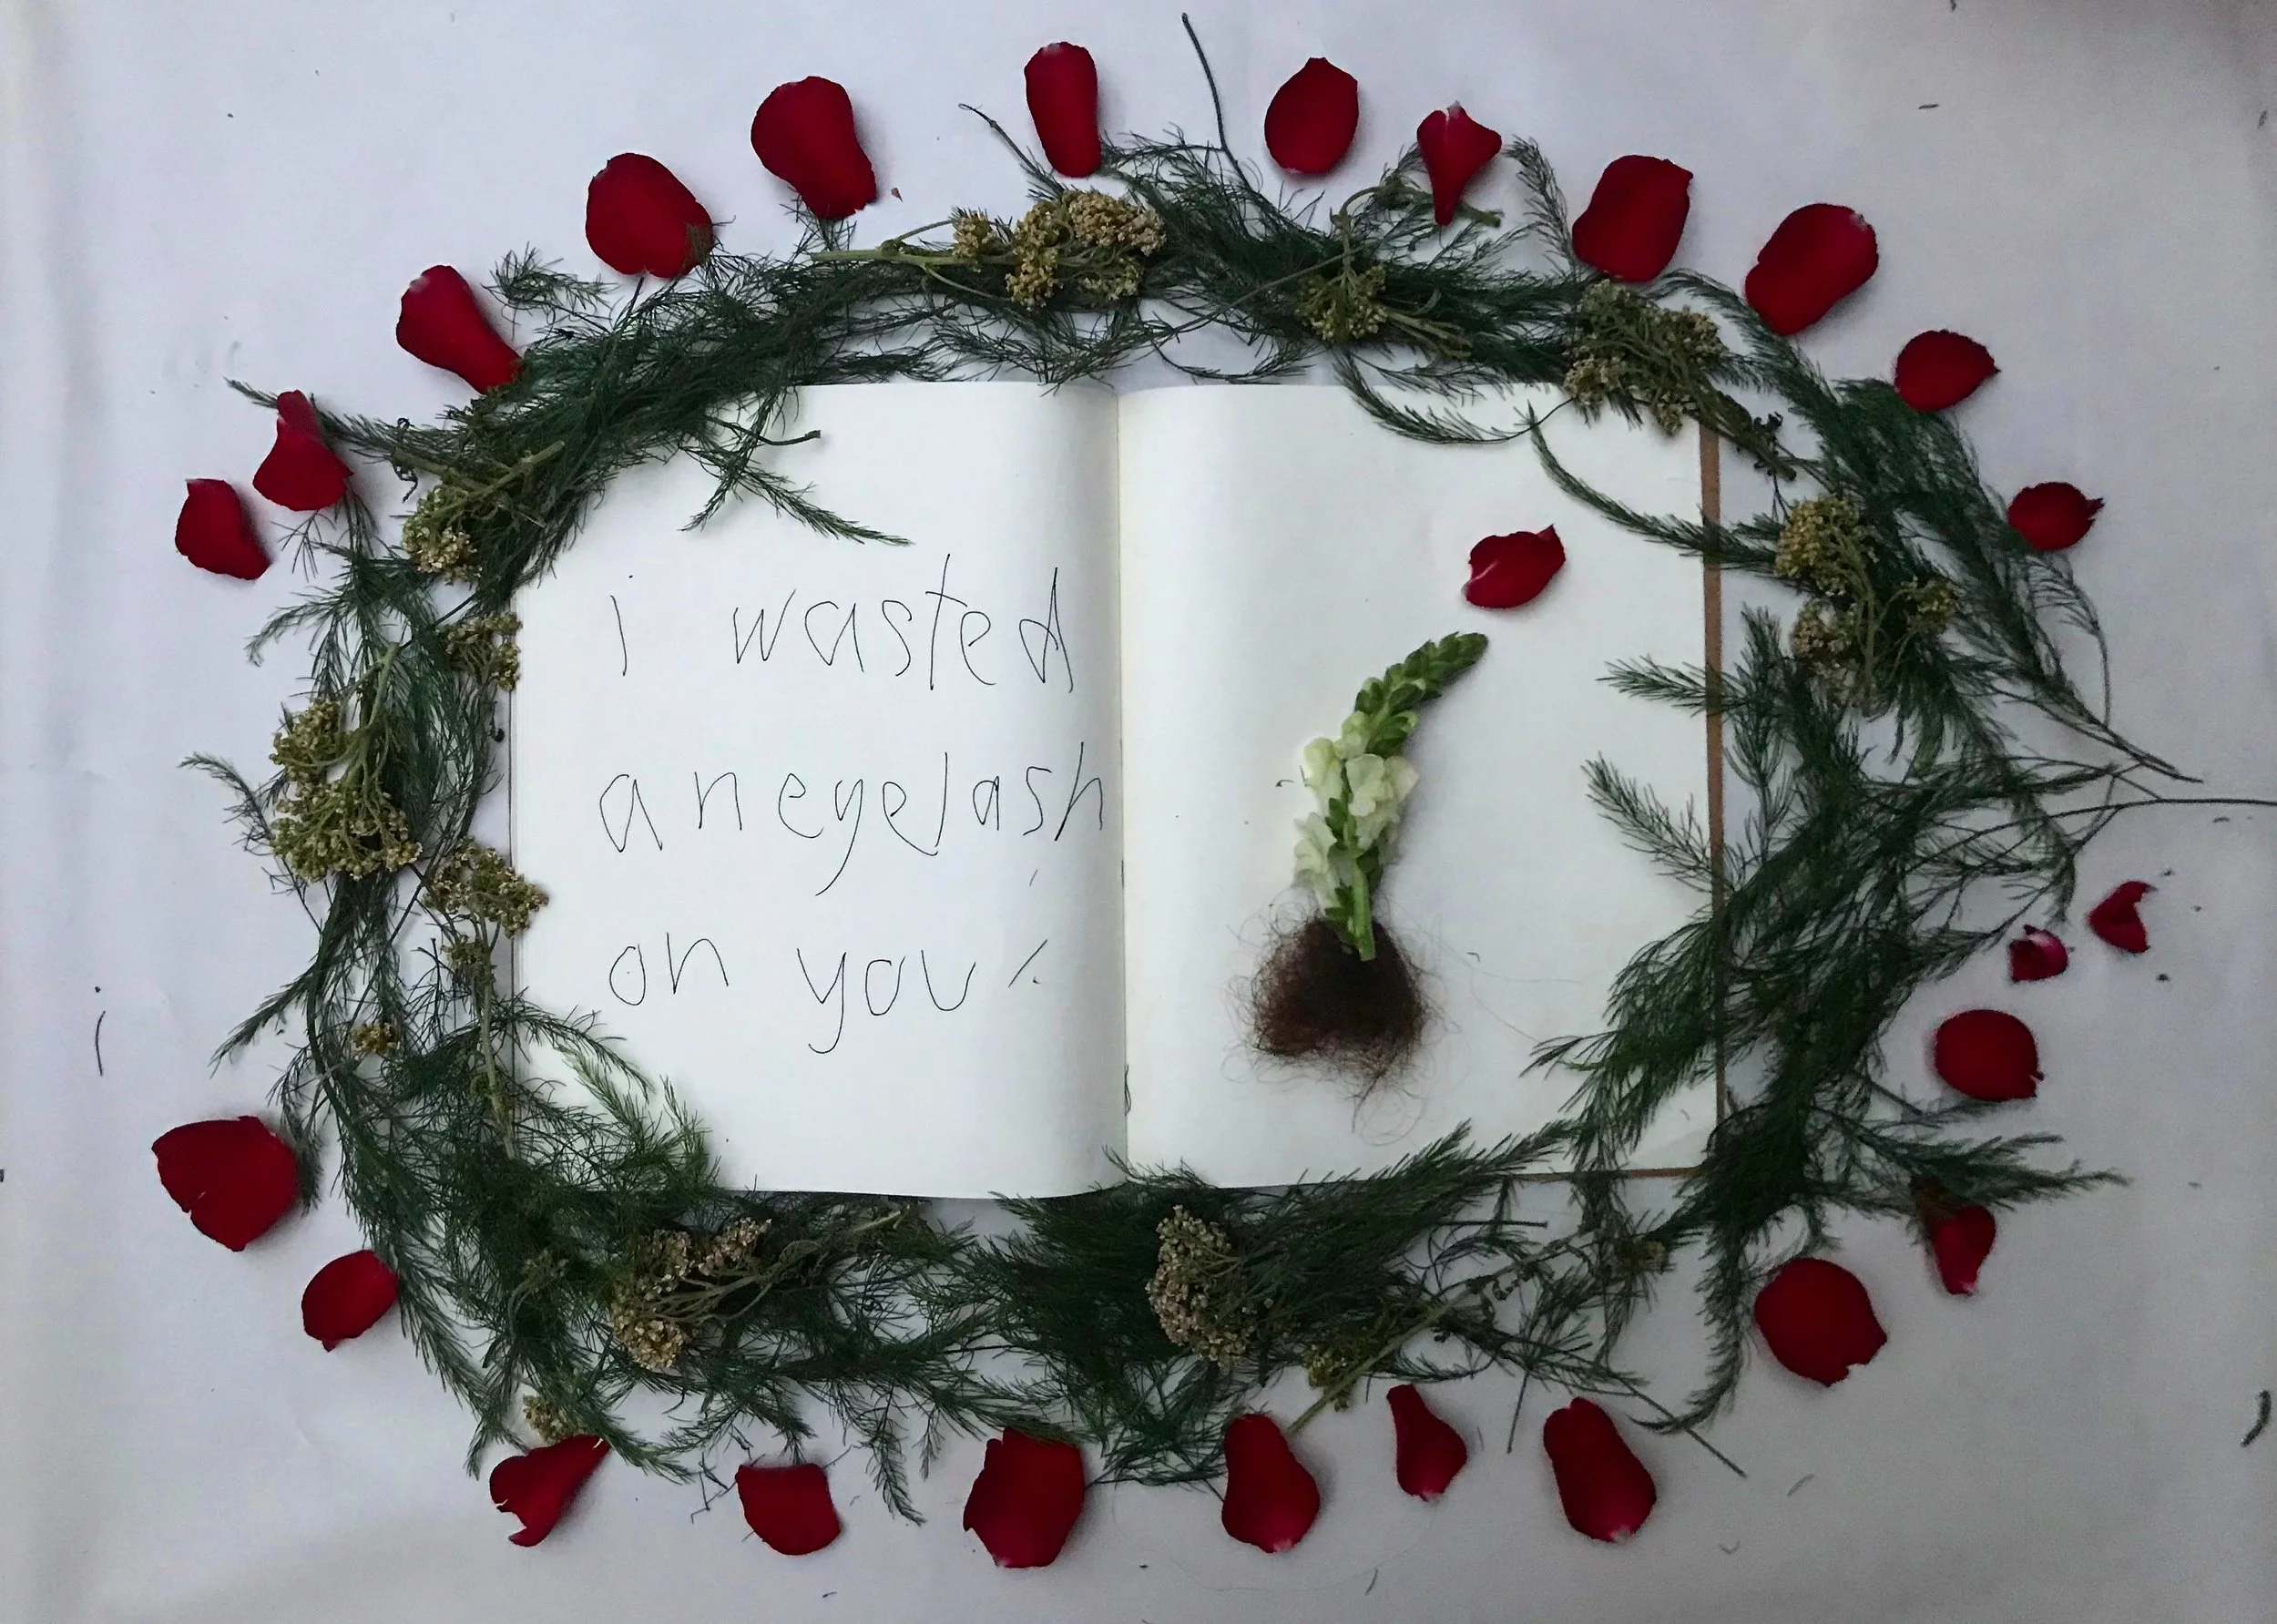 i wasted
an eyelash
on you